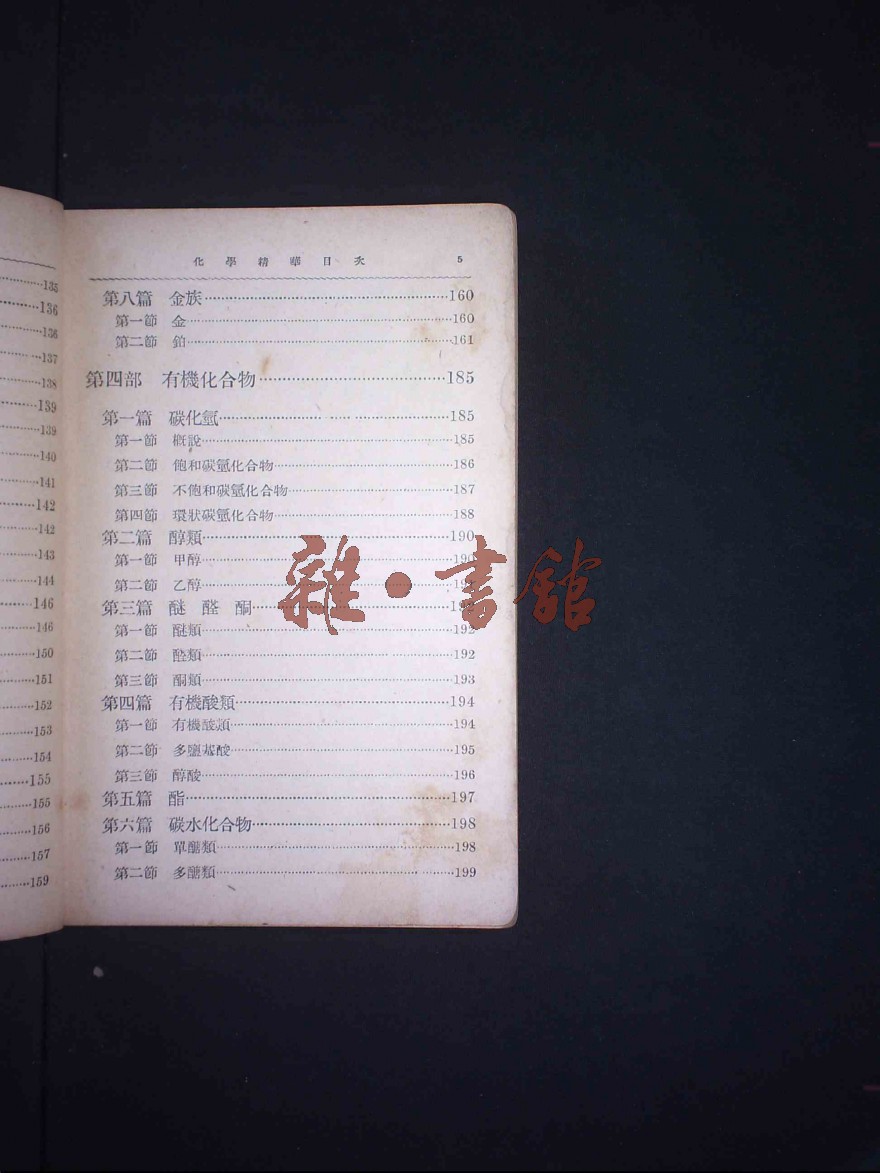 135
136
136
137
138
139
139
140
141
142
142
143
144
146
146
150
151
152
153
154
155
155
156
157
159
化學精華目次 5
第八篇 金族 160
第一節 金 160
第二節 鉑 161
第四部 有機化合物 185
第一篇 碳化氫 185
第一節 概說 185
第二節 飽和碳氫化合物 186
第三節 不飽和碳氫化合物 187
第四節 環狀碳氫化合物 188
第二篇 醇類 190
第一節 甲醇 190
第二節 乙醇
第三篇 醚 醛 酮
第一節 醚類 192
第二節 醛類 192
第三節 酮類 193
第四篇 有機酸類 194
第一節 有機酸類 194
第二節 多鹽基酸 195
第三節 醇酸 196
第五篇 酯 197
第六篇 碳水化合物 198
第一節 單醣類 198
第二節 多醣類 199
雜·書館